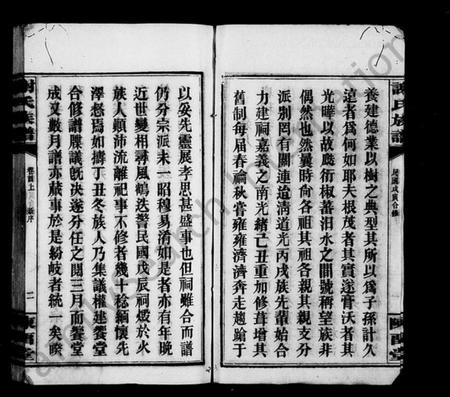 謝氏族譜
民國戊寅合修
陳留堂
養建德業以樹之典型其所以爲子孫計久
遠者爲何如耶夫根茂者其實遂膏沃者其
光曄以故慶衍椒蕃汨水之間號稱望族非
偶然也然曩時向各祖其祖各親其親支分
派別罔有關連迨淸道光丙戌族先輩始合
力建祠嘉義之南光緒乙亥重加修葺增其
舊制每屆春論秋嘗雍雍濟濟奔走趨蹌于
以妥先靈展孝思甚盛事也但祠雖合而譜
仍分宗派未一昭穆易淆如是者亦有年晚
近世變相尋風鶴迭警民國戊辰祠燬於火
族人顛沛流離祀事不修者幾十稔緬懷先
澤怒焉如擣丁丑冬族人乃集議權建饗堂
合修譜牒議旣決遂分任之閱三月而饗堂
成又數月譜亦蕆事於是紛歧者統一矣睽
謝氏族譜
卷首上
新序
二
陳留堂